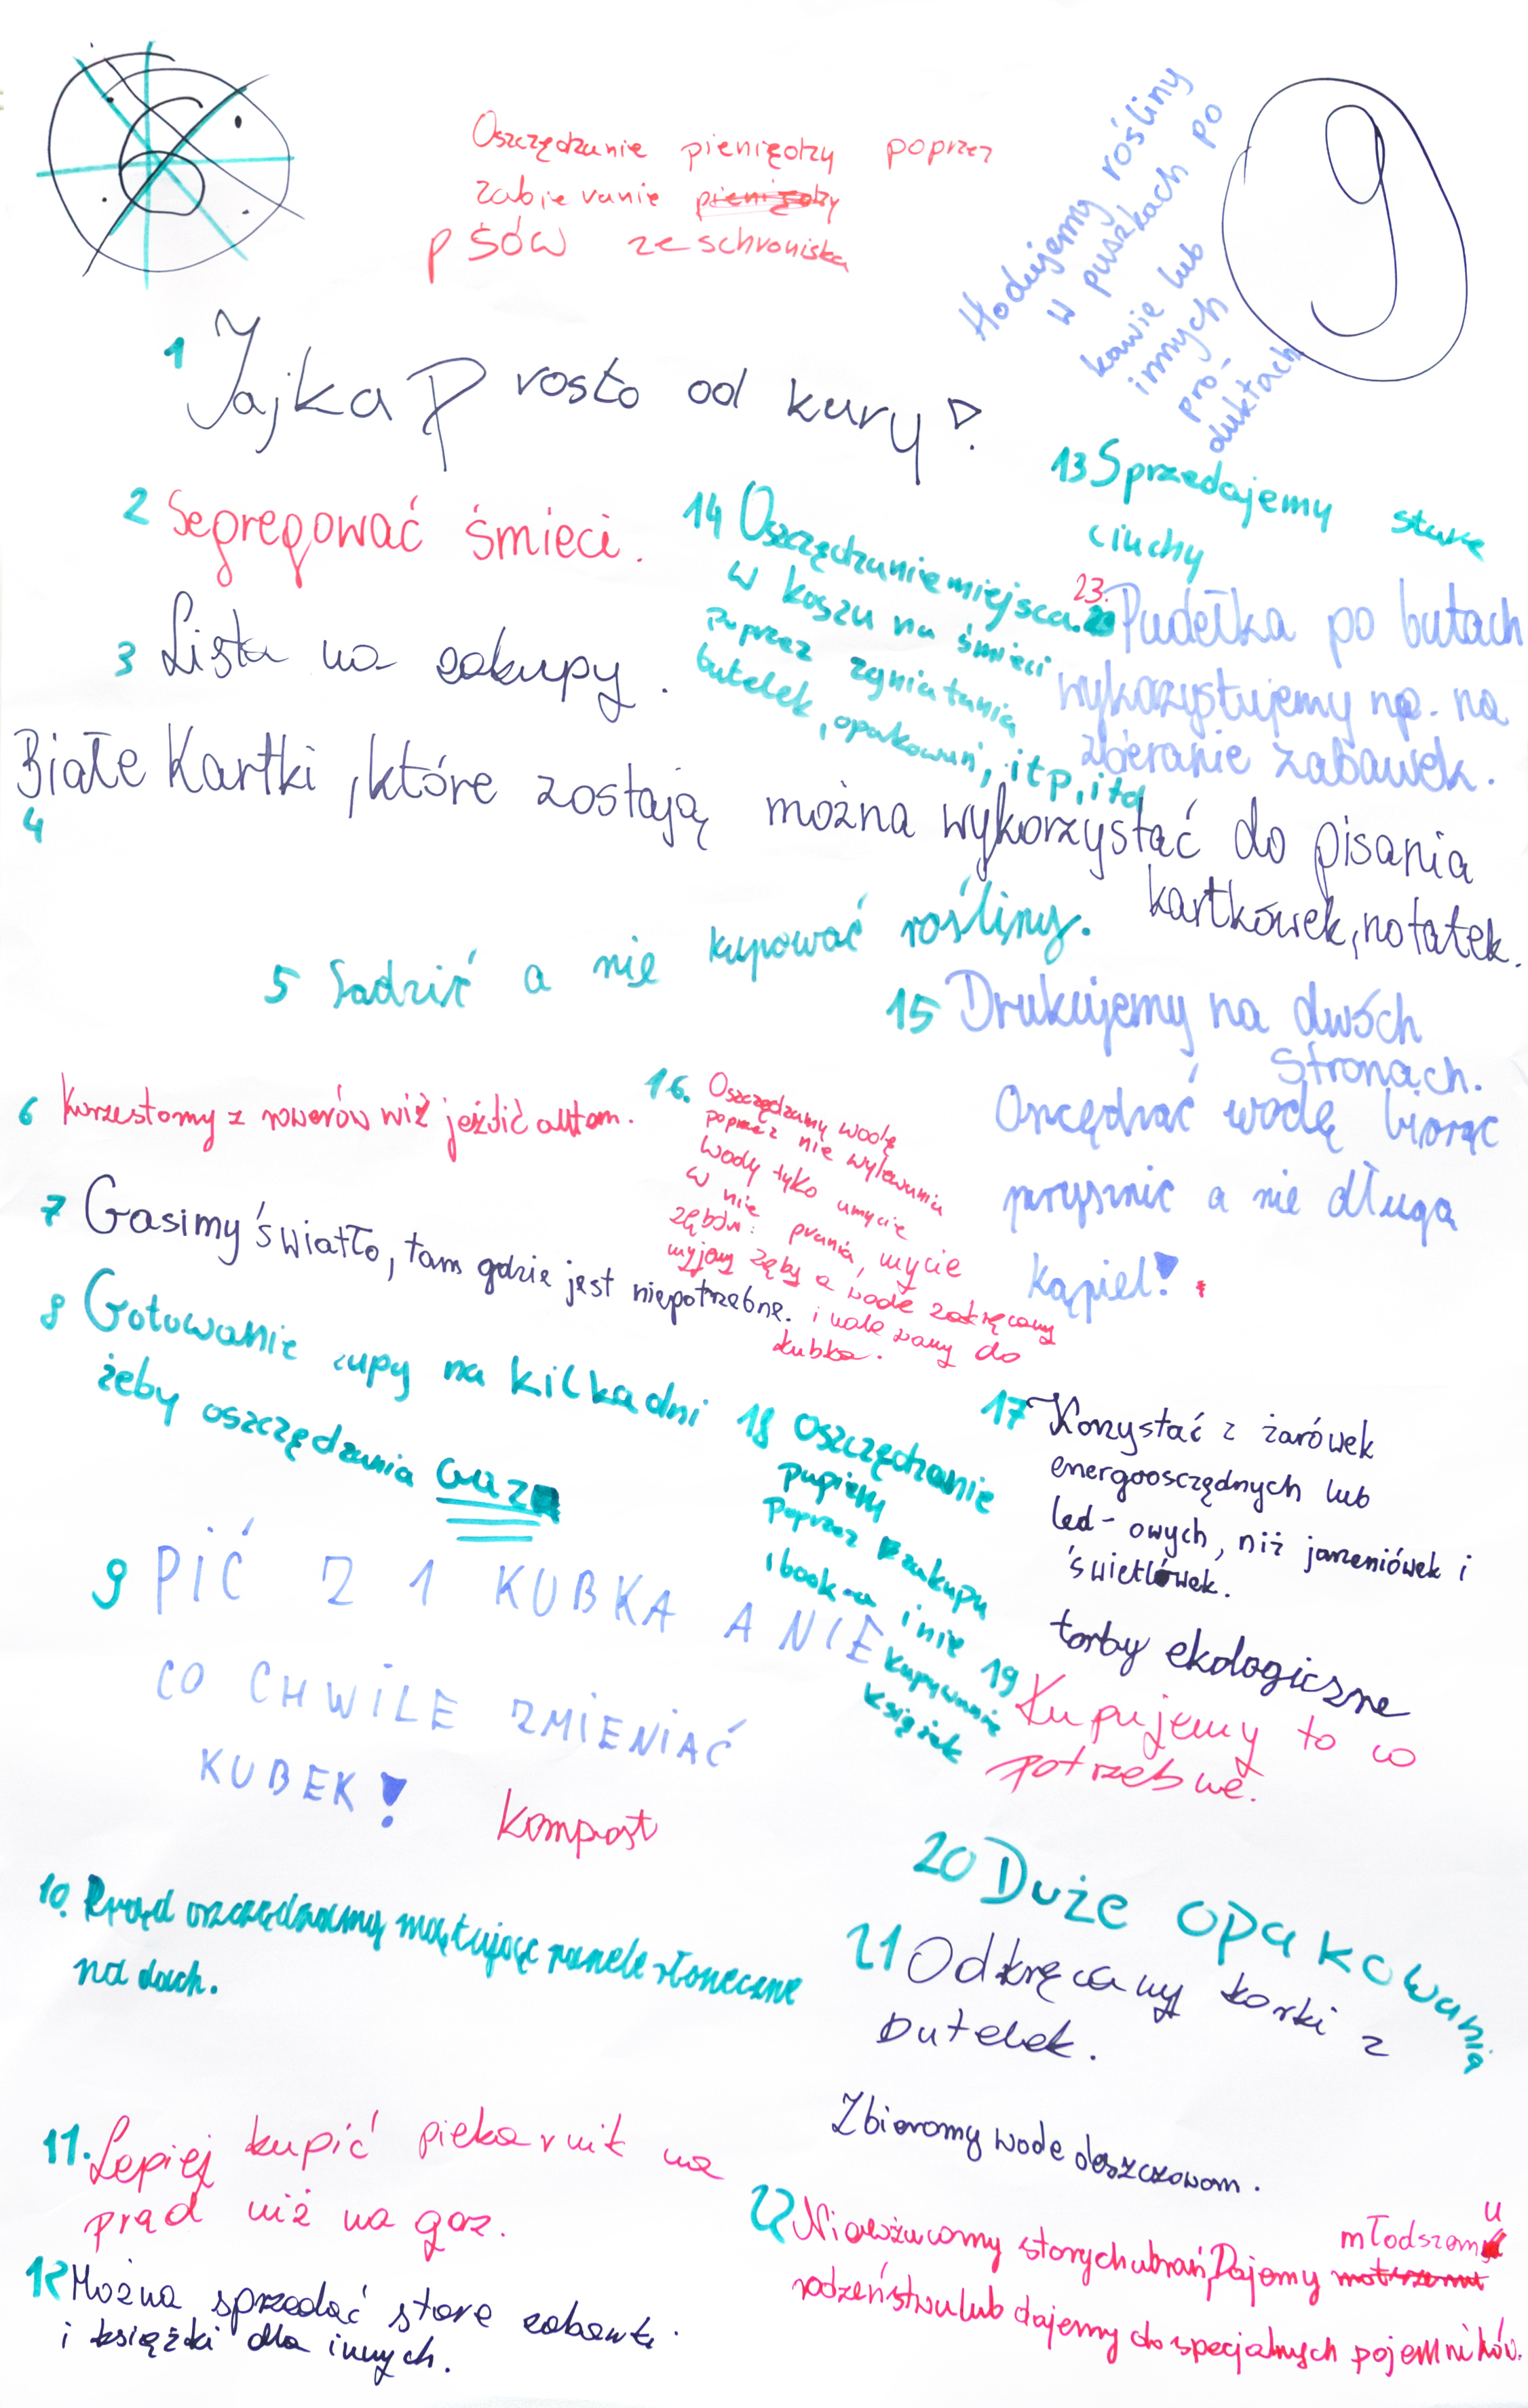 Oszczędzanie pieniędzy poprzez
zabieranie pieniędzy
psów ze schroniska
Hodujemy rośliny
w puszkach po
kawie lub
innych
pro-
duktach
9
1 Jajka Prosto od kury!
2 Segregować śmieci.
3 Lista na zakupy.
4 Białe Kartki, które zostają można wykorzystać do pisania
kartkówek, notatek.
5 Sadzić a nie kupować rośliny.
6 Korzestomy z rowerów niż jeździć autom.
7 Gasimy światło, tam gdzie jest niepotrzebne.
8 Gotowanie zupy na kilka dni
żeby oszczędzania Gazu
9 PIĆ Z 1 KUBKA A NIE
CO CHWILE ZMIENIAĆ
KUBEK!
kompost
10. Prąd oszczędzamy mątując panele słoneczne
na dach.
11. Lepiej kupić piekarnik na
prąd niż na gaz.
12 Można sprzedać stare zabawki
i książki dla innych.
13 Sprzedajemy stare
ciuchy
14 Oszczędzanie miejsca.
w koszu na śmieci
poprzez zgniatania
butelek, opakowań, itp, itd
23. Pudełka po butach
wykozystujemy np. na
zbieranie zabawek.
15 Drukujemy na dwóch
stronach.
Oscędzać wodę biorąc
prysznic a nie długą
kąpiel!
16. Oszczędzamy wodę
poprzez nie wylewania
wody tylko umycie
w nie prania, mycie
zębów: myjemy zęby a wode zakręcamy
i nalewamy do
kubka.
17 Korzystać z żarówek
energoosczędnych lub
led-owych, niż jarzeniówek i
świetlówek.
torby ekologiczne
18 Oszczędzanie
papieru
poprzez zakupu
ibook-a i nie
kupywanie
książek
19 Kupujemy to co
potrzebne.
20 Duże opakowania
21 Odkręcamy korki z
butelek.
Zbieramy wode deszczowom.
22 Niewyżucamy starych ubrań, Dajemy młodszemu
rodzeństwu lub dajemy do specjalnych pojemników.